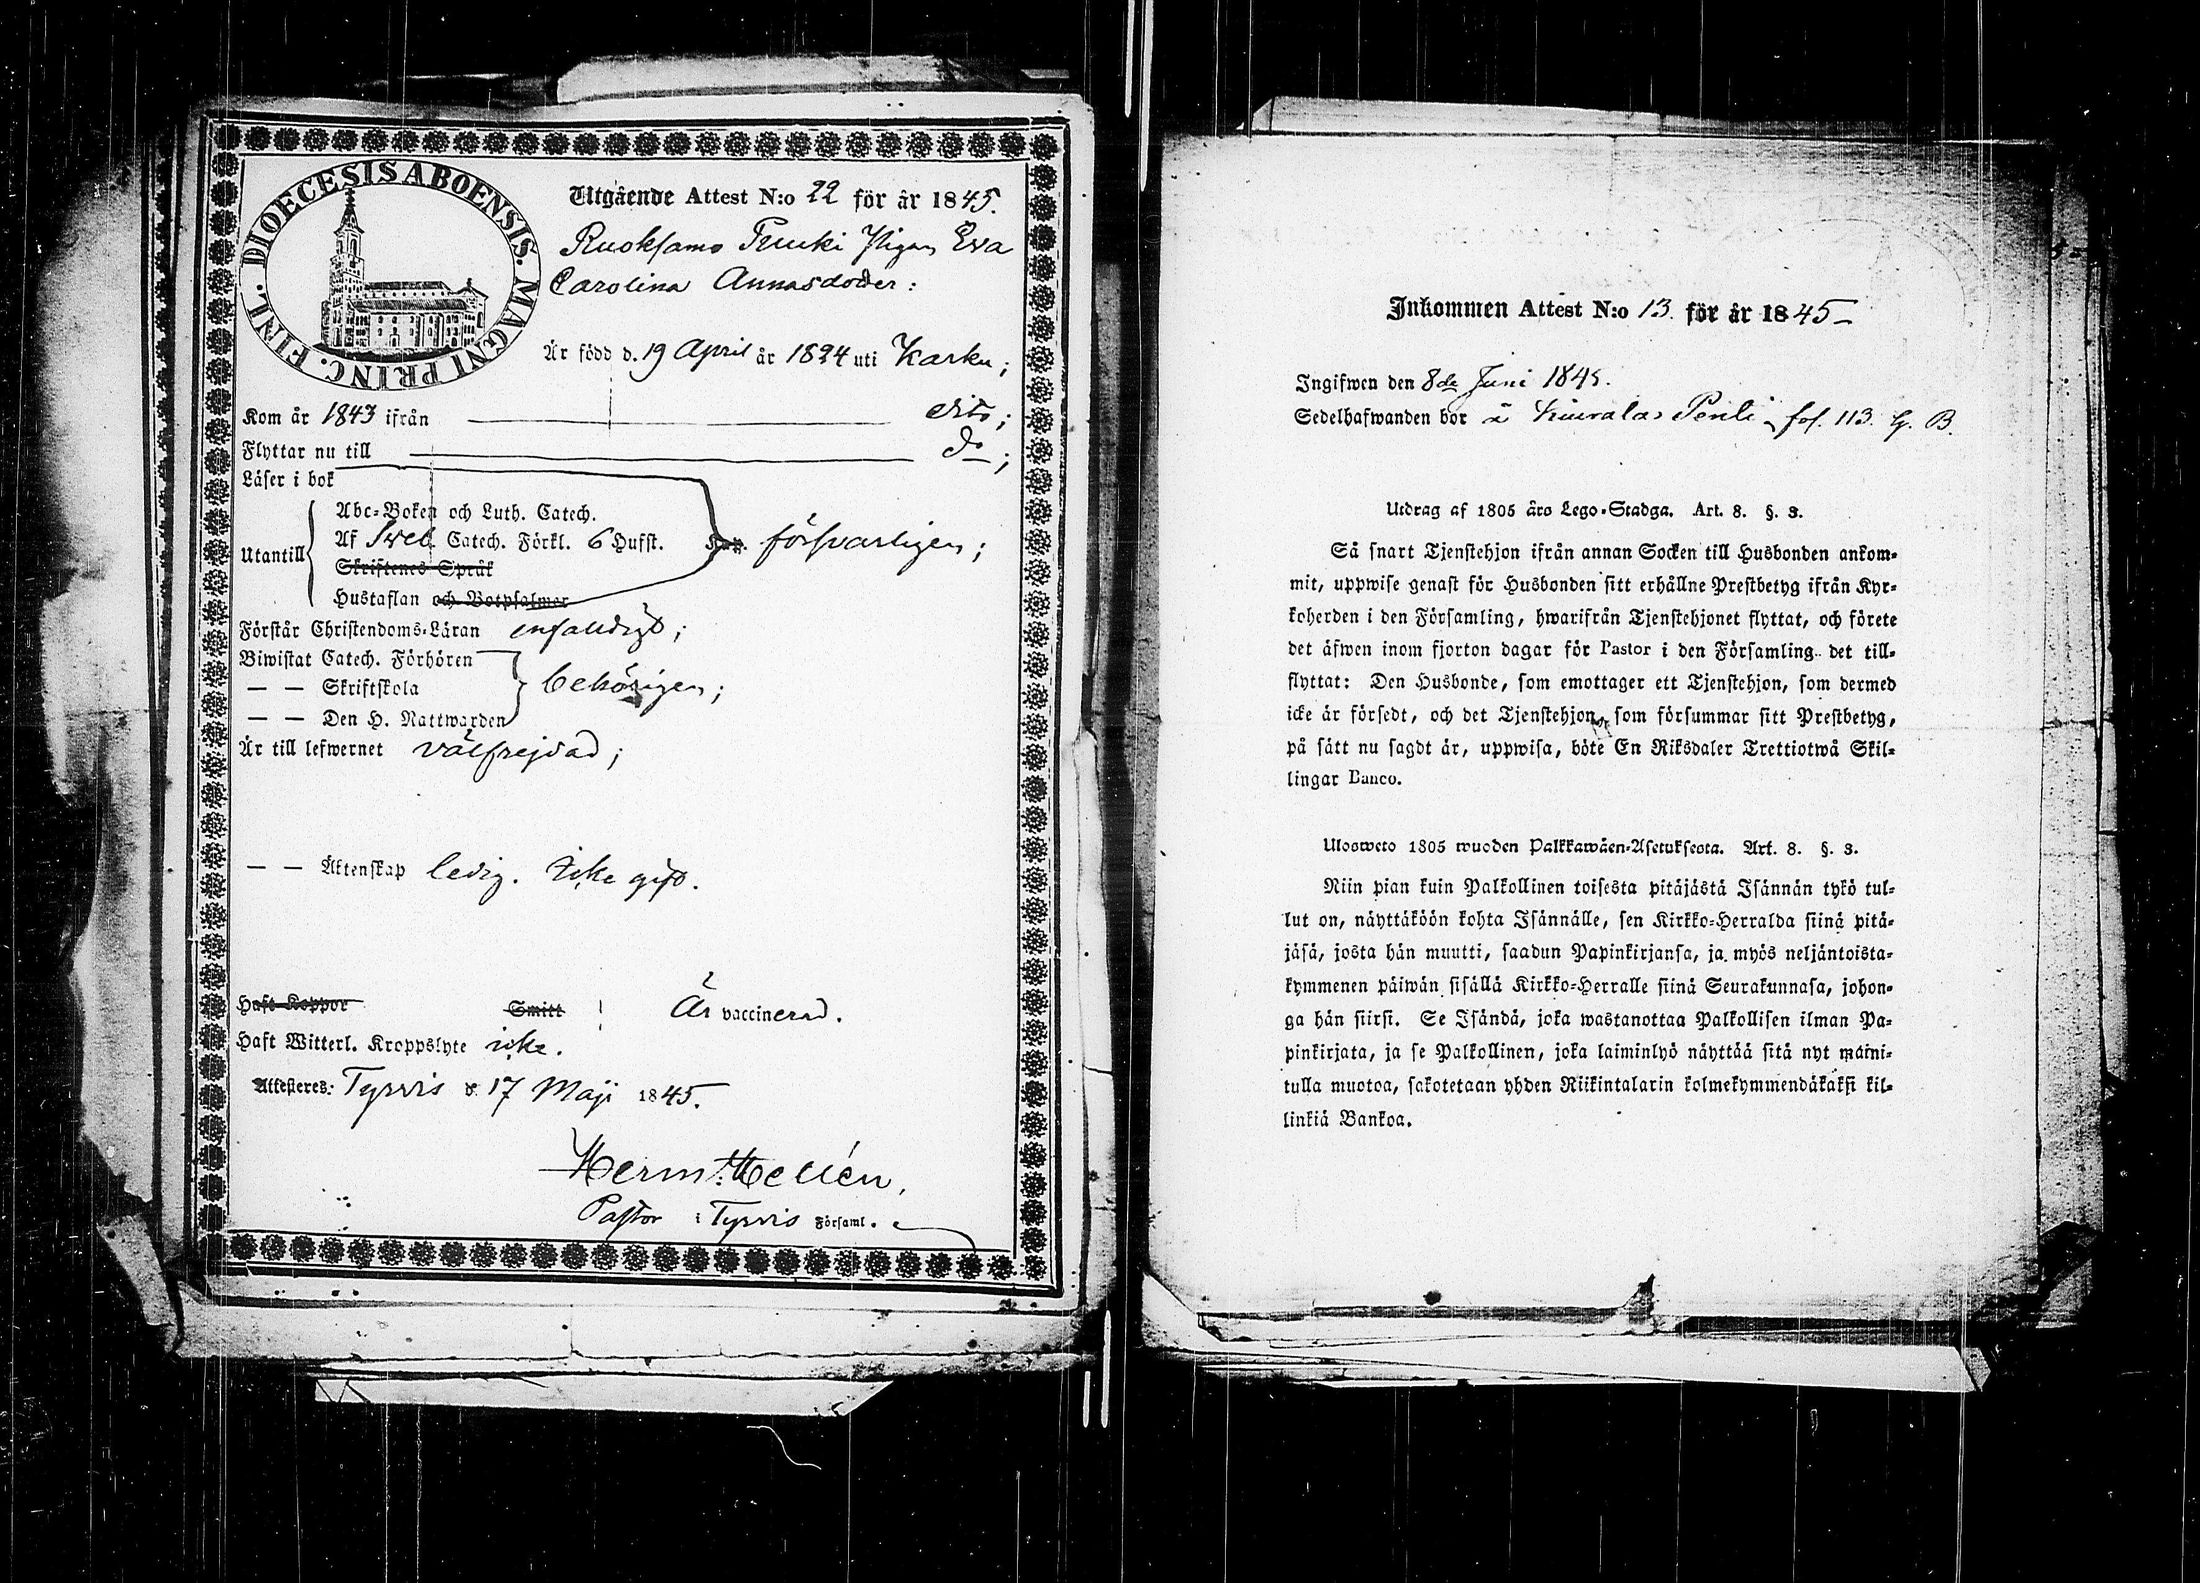 DIOECESIS ABOENSIS. MAGNI PRINC. FINL.
Utgående Attest N:o 22 för år 1845.
Ruoksamo Truuki Pigan Eva
Carolina Annasdotter:
Är född d. 19 April år 1824 uti Karku;
Kom år 1843 ifrån dito;
Flyttar nu till do;
Läser i bok
Abc-Boken och Luth. Catech.
Utantill Af Sveb. Catech. Förkl. 6 Hufst. försvarligen;
Skriftenes Språk
Hustaflan och Botpsalmer
Förstår Christendoms-Läran enfaldigt;
Biwistat Catech. Förhören
— — Skriftskola behörigen;
— — Den H. Nattwarden
Är till lefwernet välfrejdad;
— — Äktenskap ledig. Icke gift.
Haft Koppor Smitt Är vaccinerad.
Haft Witterl. Kroppslyte icke.
Attesteres: Tyrvis d. 17 Maji 1845.
Herm: Hellén,
Pastor i Tyrvis Församl.
Inkommen Attest N:o 13. för år 1845
Ingifwen den 8de Juni 1845.
Sedelhafwanden bor å Kiuralas Penti, fol. 113. G. B.
Utdrag af 1805 års Lego-Stadga. Art. 8. §. 3.
Så snart Tjenstehjon ifrån annan Socken till Husbonden ankom-
mit, uppwise genast för Husbonden sitt erhållne Prestbetyg ifrån Kyr-
koherden i den Församling, hwarifrån Tjenstehjonet flyttat, och förete
det äfwen inom fjorton dagar för Pastor i den Församling det till-
flyttat: Den Husbonde, som emottager ett Tjenstehjon, som dermed
icke är försedt, och det Tjenstehjon, som försummar sitt Prestbetyg,
på sätt nu sagdt är, uppwisa, böte En Riksdaler Trettiotwå Skil-
lingar Banco.
Ulosweto 1805 wuoden Palkkawäen-Asetuksesta. Art. 8. §. 3.
Niin pian kuin Palkollinen toisesta pitäjästä Isännän tykö tul-
lut on, näyttäköön kohta Isännälle, sen Kirkko-Herralda siinä pitä-
jäsä, josta hän muutti, saadun Papinkirjansa, ja myös neljäntoista-
kymmenen päiwän sisällä Kirkko-Herralle siinä Seurakunnasa, johon-
ga hän siirsi. Se Isändä, joka wastanottaa Palkollisen ilman Pa-
pinkirjata, ja se Palkollinen, joka laiminlyö näyttää sitä nyt maini-
tulla muotoa, sakotetaan yhden Riikintalarin kolmekymmendäkaksi kil-
linkiä Bankoa.